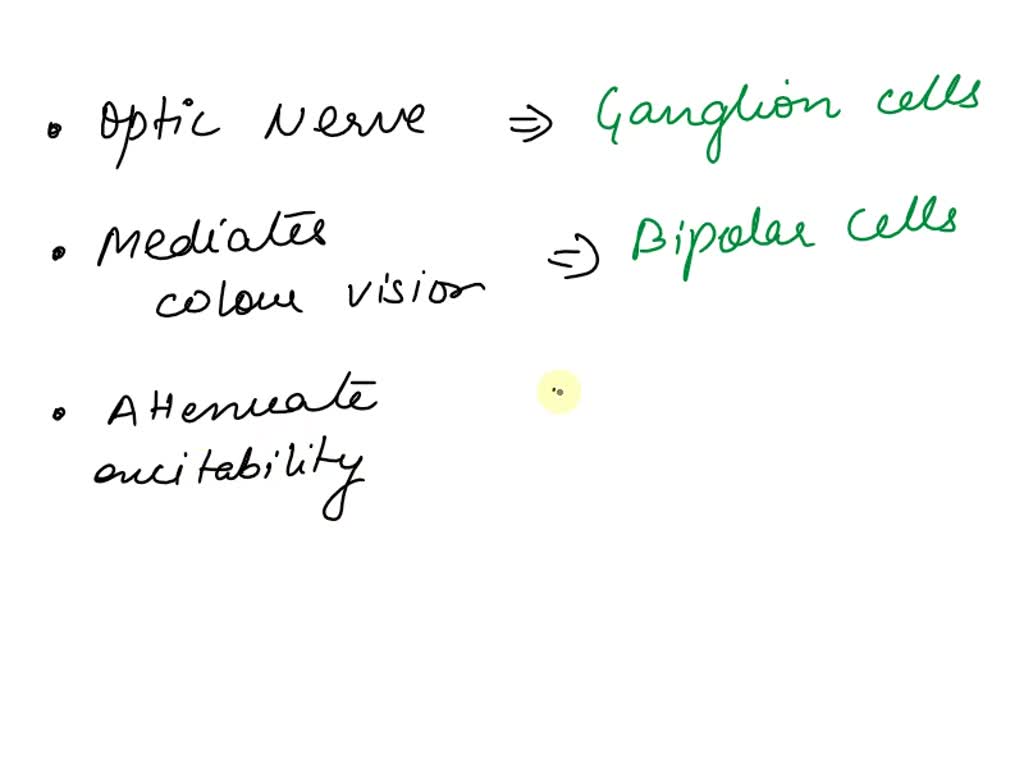 • Optic Nerve ⇒ Ganglion cells
• Mediates ⇒ Bipolar cells
colour vision
• Attenuate
excitability